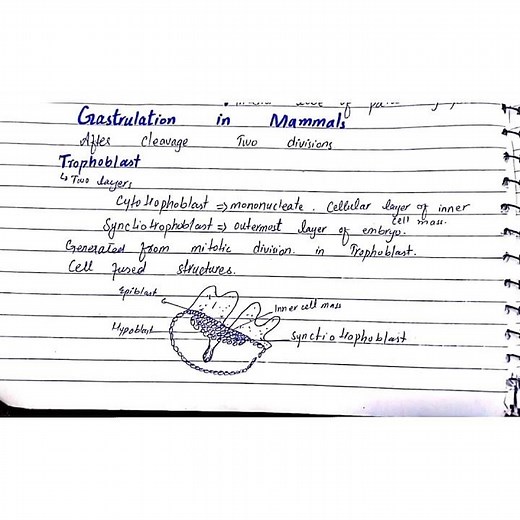 of
Gastrulation in Mammals
After cleavage Two divisions
Trophoblast
↳ Two layers
Cytotrophoblast => mononucleate. Cellular layer of inner
cell mass.
Synctiotrophoblast => outermost layer of embryo.
Generated from mitotic division in Trophoblast.
Cell fused structures.
Epiblast
Inner cell mass
Hypoblast
Synctiotrophoblast